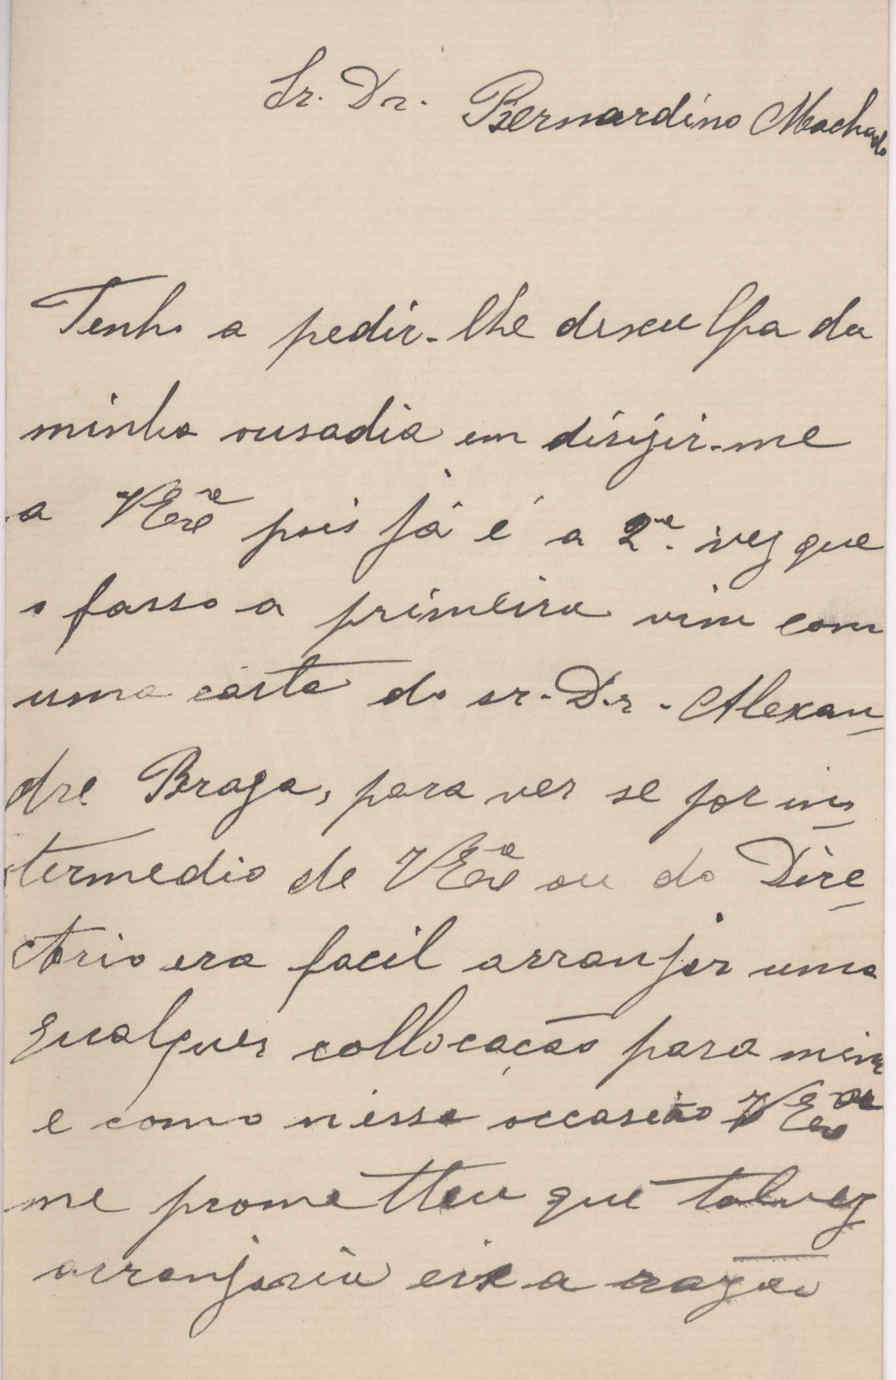 Sr. Dr. Bernardino Machado
Tenho a pedir-lhe desculpa da
minha ousadia em dirijir-me
a VExª pois já é a 2ª. vez que
o fasso a primeira vim com
uma carta do sr. Dr. Alexan-
dre Braga, para ver se por in-
termedio de VExª ou do Dire-
ctorio era facil arranjar uma
qualquer collocação para mim
e como n'essa occasião VExª
me prometteu que talvez
arranjaria eis a razão